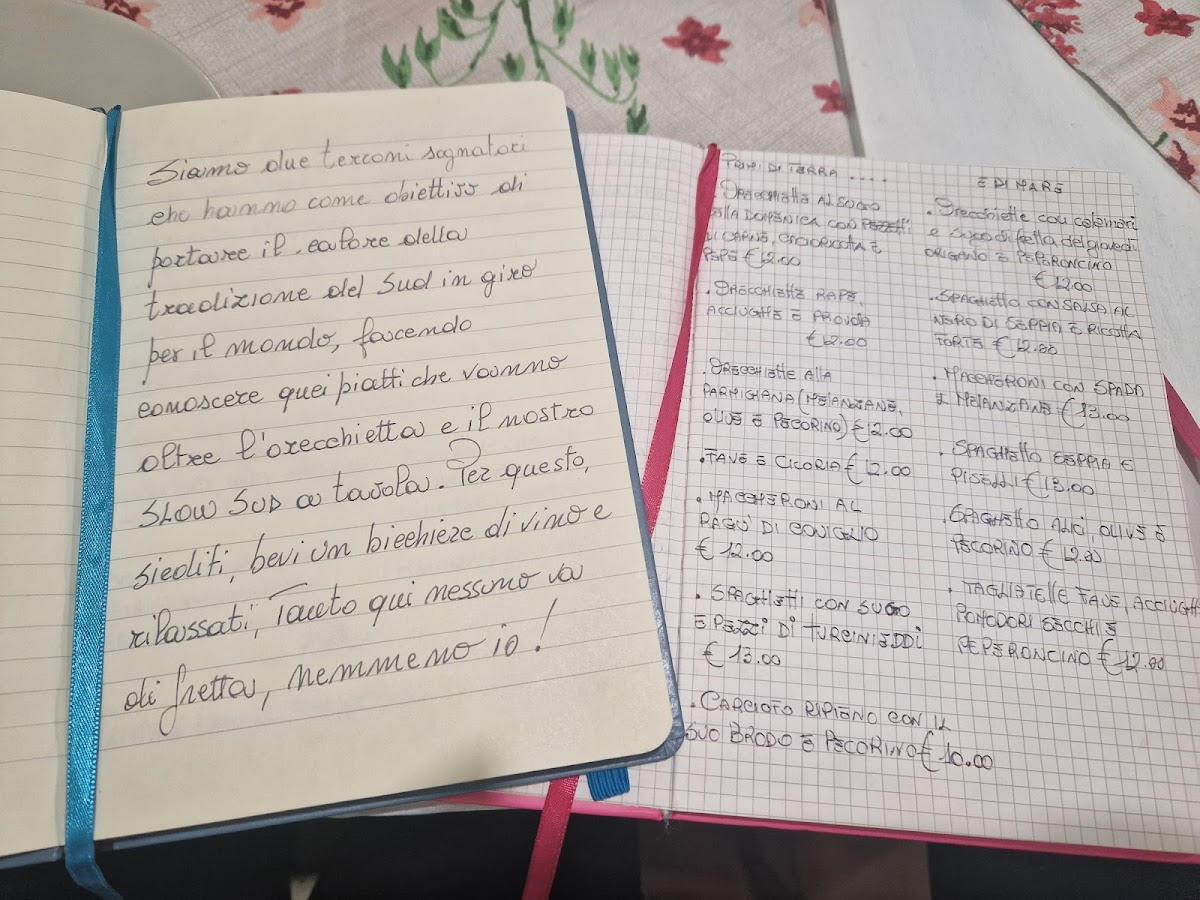 Siamo due terroni sognatori
che hanno come obiettivo di
portare il calore della
tradizione del Sud in giro
per il mondo, facendo
conoscere quei piatti che vanno
oltre l'orecchietta e il nostro
SLOW SUD a tavola. Per questo,
siediti, bevi un bicchiere di vino e
rilassati, Tanto qui nessuno va
di fretta, nemmeno io!
PRIMI DI TERRA ....
. ORECCHIETTE AL SUGO
DELLA DOMENICA CON PEZZETTI
DI CARNE, CACIORICOTTA E
PEPE € 12.00
. ORECCHIETTE RAPE,
ACCIUGHE E PROVOLA
€ 12.00
. ORECCHIETTE ALLA
PARMIGIANA (MELANZANE,
OLIVE E PECORINO) € 12.00
. FAVE E CICORIA € 12.00
. MACCHERONI AL
RAGÙ DI CONIGLIO
€ 12.00
. SPAGHETTI CON SUGO
E PEZZI DI TURCINIEDDI
€ 13.00
. CARCIOFO RIPIENO CON IL
SUO BRODO E PECORINO € 10.00
E DI MARE
. Orecchiette con calamari
e sugo di fretta del giovedì
ORIGANO E PEPERONCINO
€ 12.00
. SPAGHETTO CON SALSA AL
NERO DI SEPPIA E RICOTTA
FORTE € 12.00
. MACCHERONI CON SPADA
E MELANZANE € 13.00
. SPAGHETTO SEPPIA E
PISELLI € 13.00
. SPAGHETTO ALICI, OLIVE E
PECORINO € 12.00
. TAGLIATELLE FAVE, ACCIUGHE
POMODORI SECCHI E
PEPERONCINO € 12.00